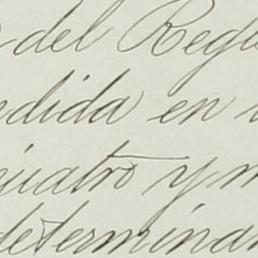 del Regla
dida en
cuatro y m
determinan